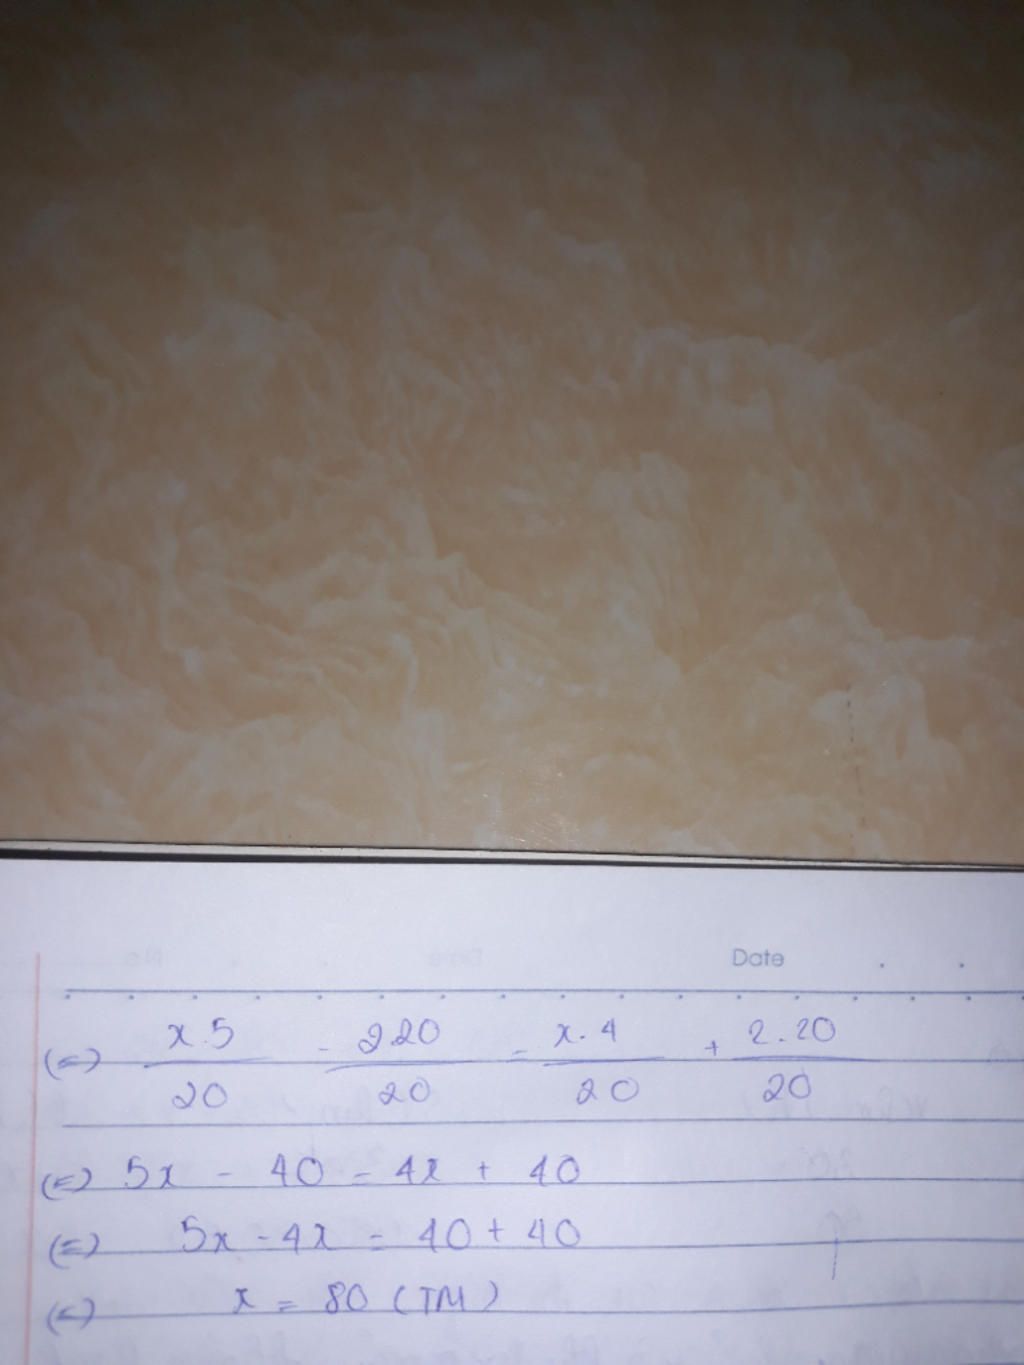 Date
(=) x.5/20 - 2.20/20 = x.4/20 + 2.20/20
(=) 5x - 40 = 4x + 40
(=) 5x - 4x = 40 + 40
(=) x = 80 (TM)